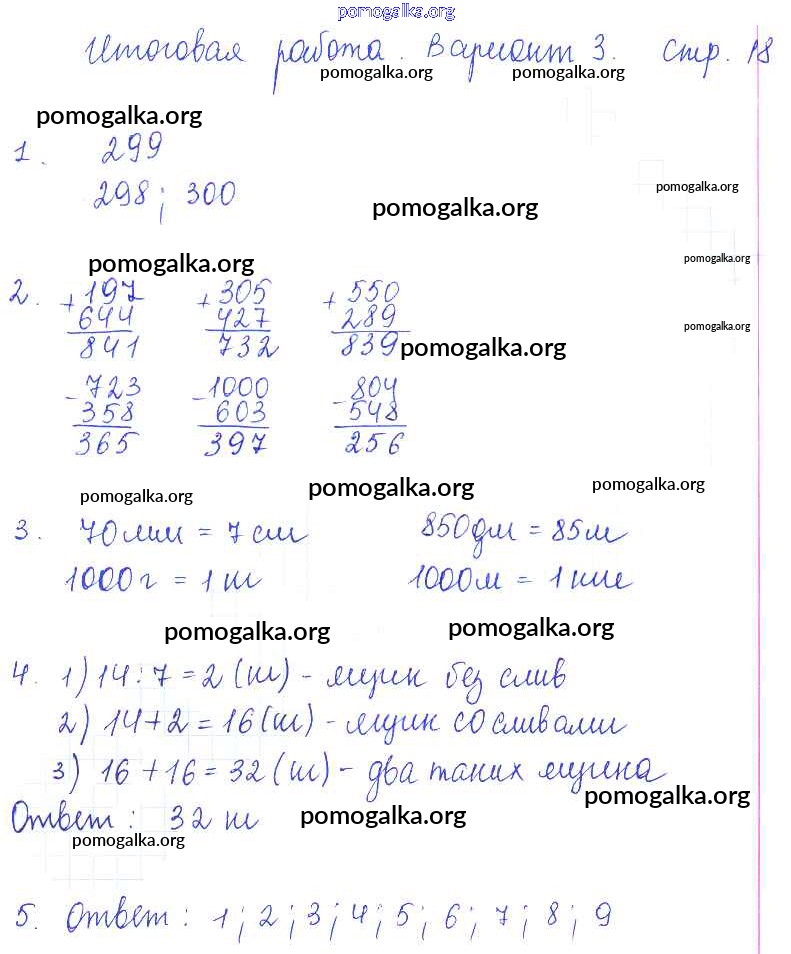 pomogalka.org
Итоговая работа. Вариант 3. стр. 18
pomogalka.org pomogalka.org
pomogalka.org
1. 299
pomogalka.org
298; 300
pomogalka.org
pomogalka.org
pomogalka.org
2. + 197 + 305 + 550
644 427 289
pomogalka.org
841 732 839
pomogalka.org
- 723 - 1000 - 804
358 603 548
365 397 256
pomogalka.org pomogalka.org pomogalka.org
3. 70 мм = 7 см 850 дм = 85 м
1000 г = 1 кг 1000 м = 1 км
pomogalka.org pomogalka.org
4. 1) 14 : 7 = 2 (кг) - ящик без слив
2) 14 + 2 = 16 (кг) - ящик со сливами
3) 16 + 16 = 32 (кг) - два таких ящика
pomogalka.org
Ответ: 32 кг
pomogalka.org
pomogalka.org
5. Ответ: 1; 2; 3; 4; 5; 6; 7; 8; 9